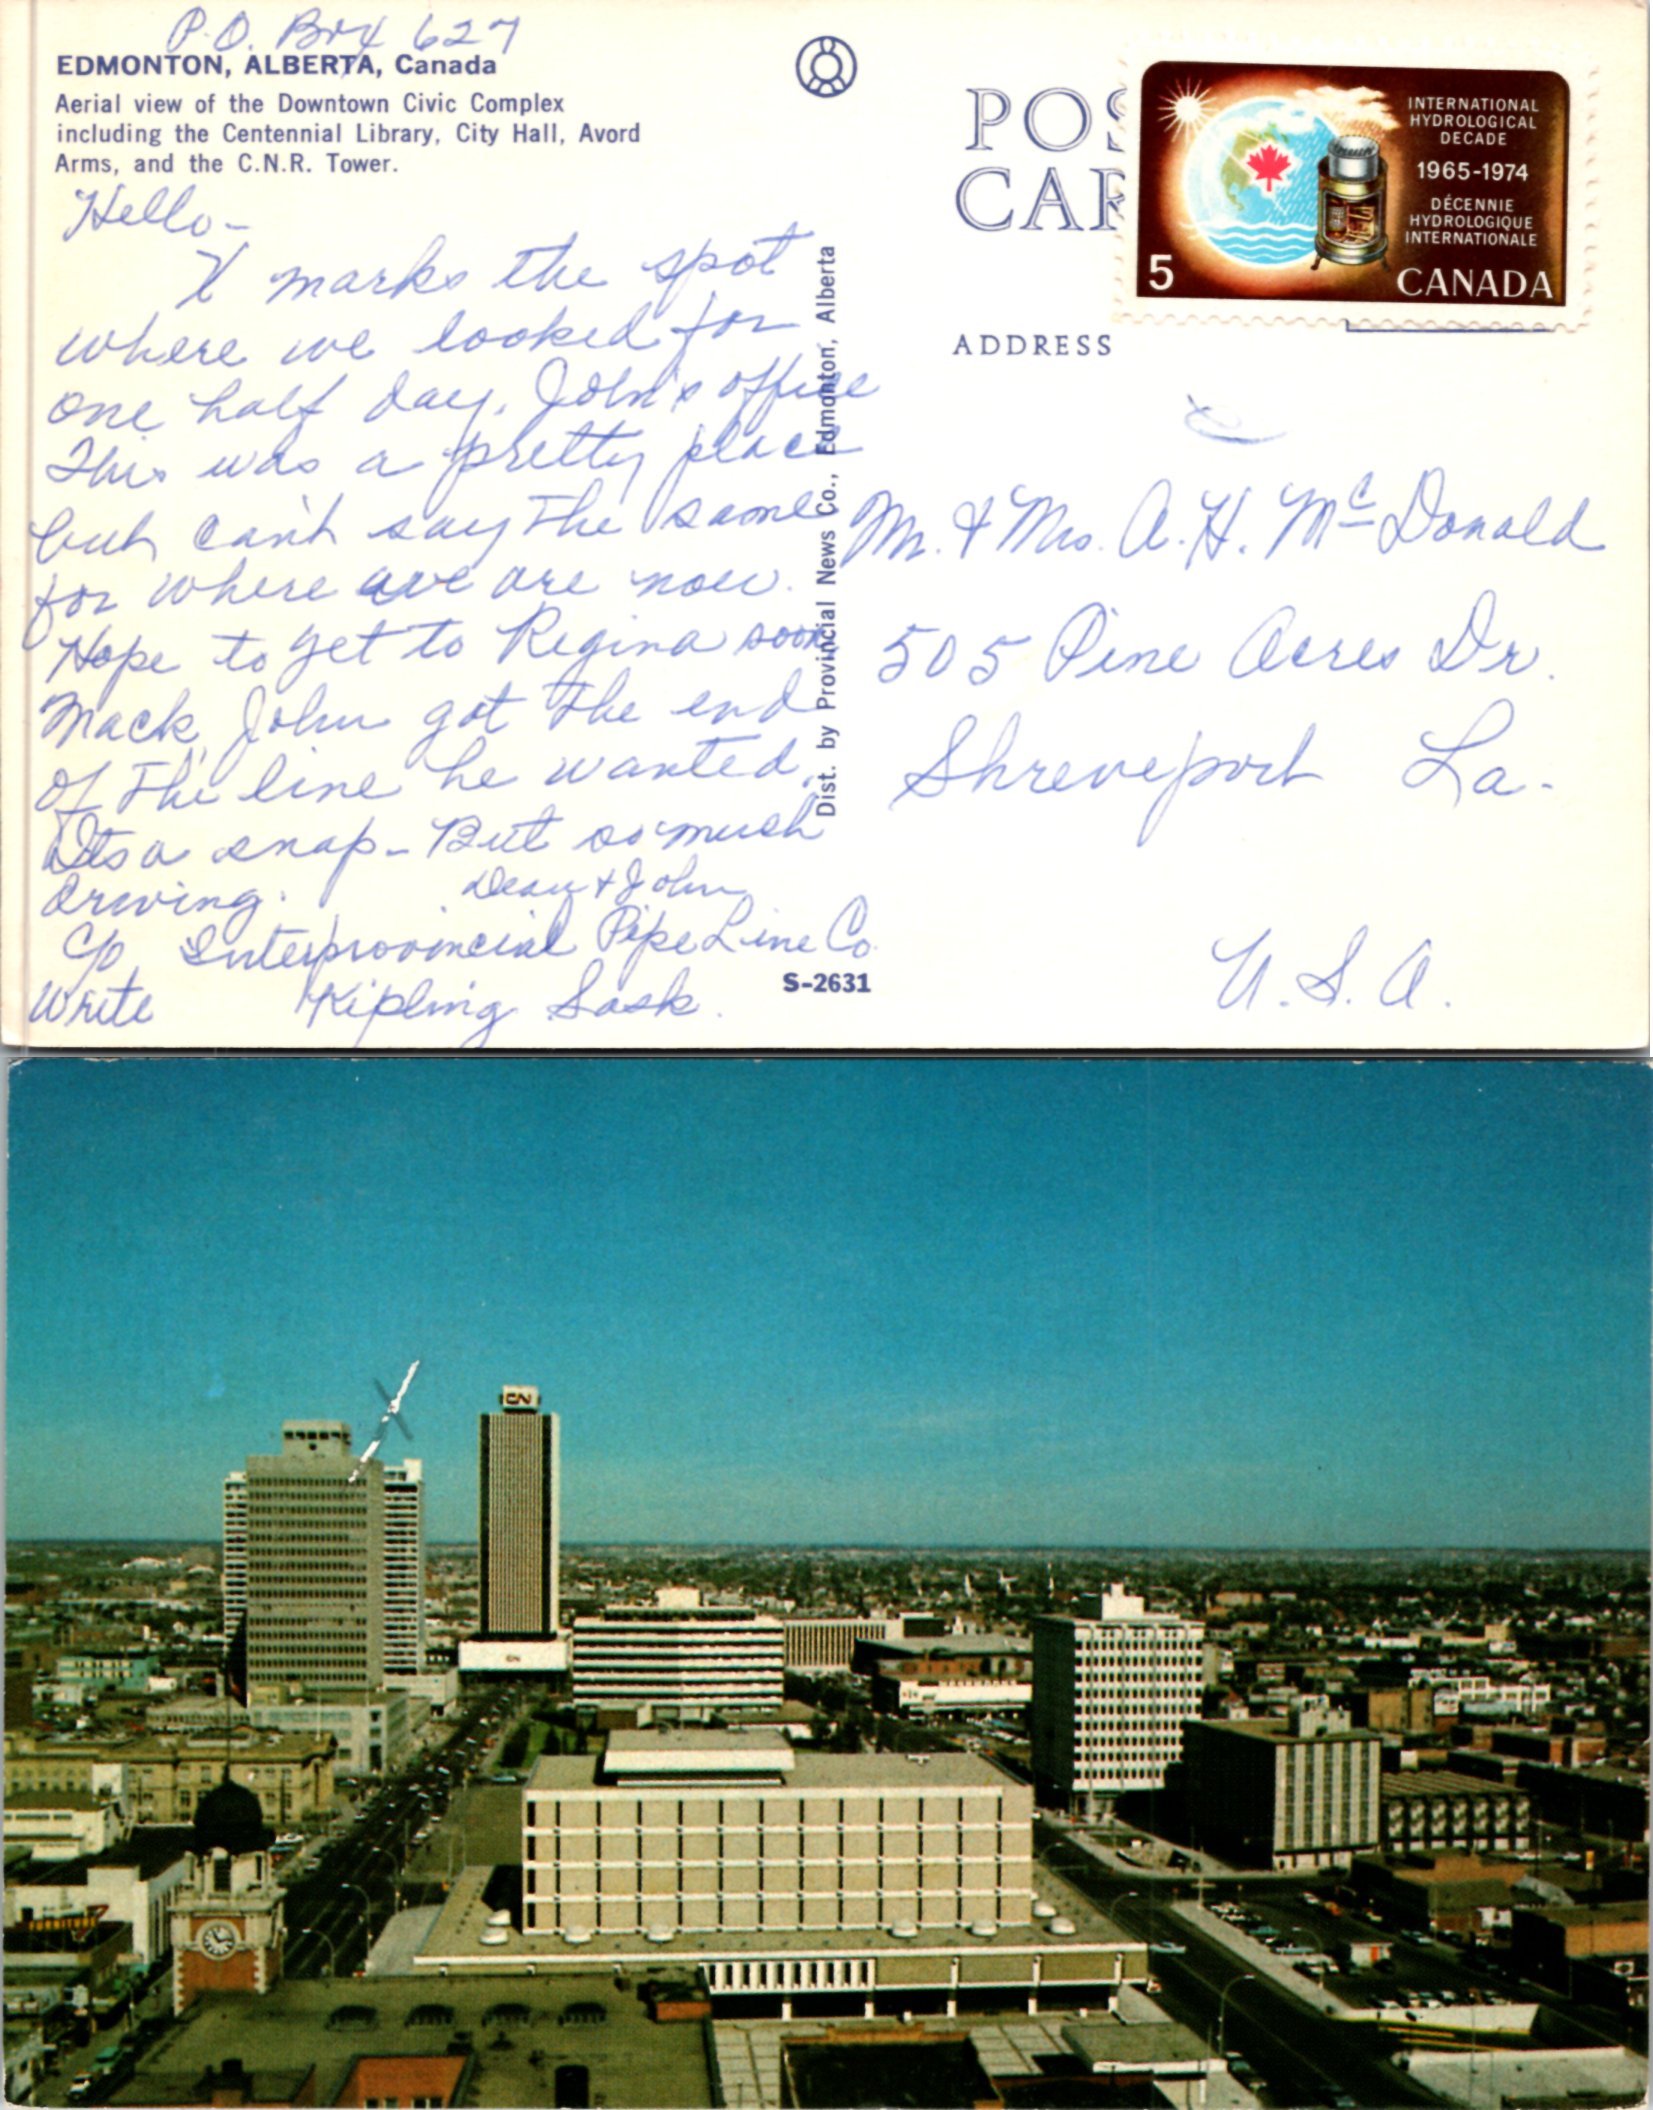 P.O. Box 627
EDMONTON, ALBERTA, Canada
Aerial view of the Downtown Civic Complex
including the Centennial Library, City Hall, Avord
Arms, and the C.N.R. Tower.
Hello-
X marks the spot
where we looked for
one half day. John's office
This was a pretty place
but can't say the same
for where we are now.
Hope to get to Regina soon
Mack, John got the end
of the line he wanted.
Its a snap - But so much
driving.
Dean & John
c/o Interprovincial Pipe Line Co.
Write Kipling Sask.
S-2631
Dist. by Provincial News Co., Edmonton, Alberta
POS
CAR
ADDRESS
INTERNATIONAL
HYDROLOGICAL
DECADE
1965-1974
DÉCENNIE
HYDROLOGIQUE
INTERNATIONALE
5
CANADA
Mr. & Mrs. A. H. McDonald
505 Pine Acres Dr.
Shreveport La.
U.S.A.
X
CN
CN